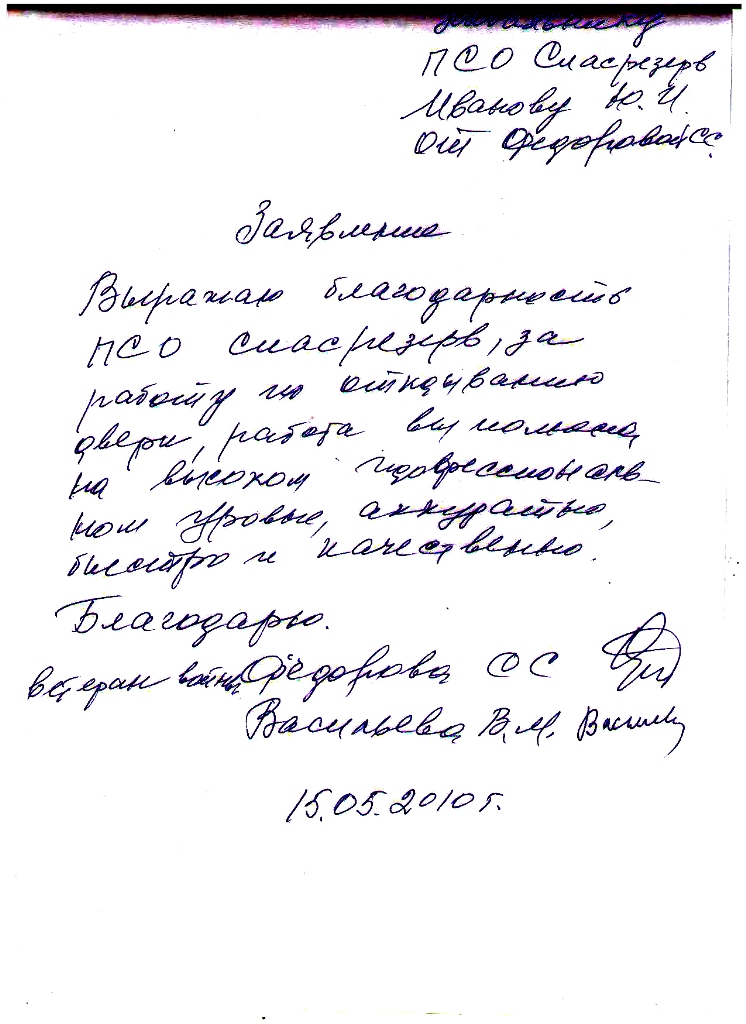 Начальнику
ПСО Спасрезерв
Иванову Ю.И.
От Федоровой СС.
Заявление
Выражаю благодарность
ПСО спасрезерв, за
работу по открыванию
двери, работа выполнена
на высоком профессиональ-
ном уровне, аккуратно,
быстро и качественно.
Благодарю.
ветеран войны Фёдорова С С
Васильева В.М.
15.05.2010г.